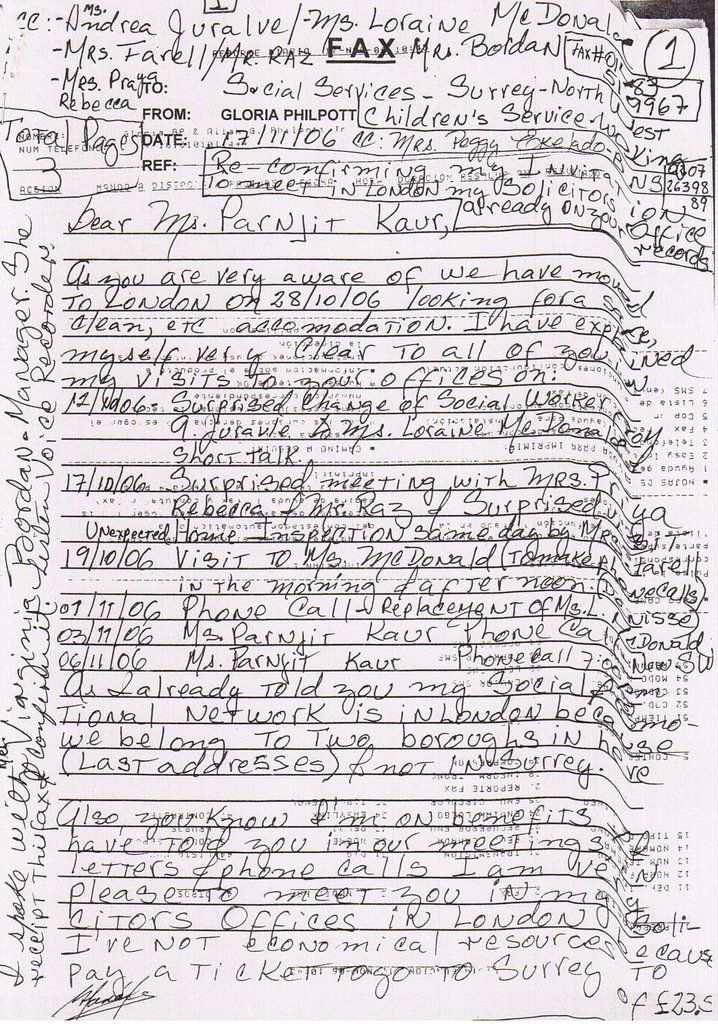 1
CC:- Ms. Andrea Juralve/-Ms. Loraine McDonal
-Mrs. Farell/Mr. RAZ / Mrs. Bordan
FAX
FAX#0
1
-Mrs. Praya
Rebecca
TO: Social Services - Surrey-North West
83
9967
FROM: GLORIA PHILPOTT
Children's Service-Woking
Total Pages
3
DATE: 17/11/06 CC: Mrs. Peggy
REF: Re-confirming my Invitation
To meet in London my Solicitors Office
already on your records
0207
26398
89
Dear Ms. Parnjit Kaur,
As you are very aware of we have moved
To London on 28/10/06 looking for a safe,
clean, etc accomodation. I have explained
myself very clear to all of you in
my visits to your offices on:
12/10/06- Surprised Change of Social Worker from
A. Juralve to Ms. Loraine McDonald
Short talk.
17/10/06- Surprised meeting with Mrs. Priya
Rebecca & Mr. Raz & Surprised
Unexpected Home Inspection same day by Mrs. Farell
19/10/06 Visit to Ms. McDonald (To make phone calls)
in the morning & afternoon. (Denisse)
01/11/06 Phone Call - Replacement of Ms. L. McDonald
03/11/06 Ms. Parnjit Kaur Phone Call New SW
06/11/06 Ms. Parnjit Kaur Phone call 7:00
As I already told you my Social & Emo-
tional Network is in London because
we belong to two boroughs in here
(Last addresses) & not in Surrey.
Also, you know I'm on benefits
have told you in our meetings,
letters & phone calls I am very
please to meet you in my Soli-
citors Offices in London because
I've not economical resources to
pay a ticket to go to Surrey of £23.5
I spoke with Mrs. Virginia Bordan - Manager. She
receipt this fax & confirm it. Listen Voice Recorder.